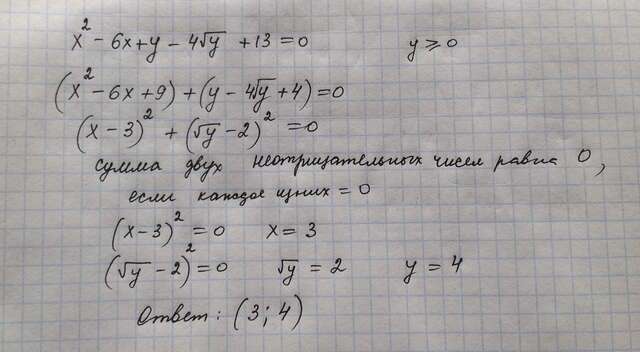 x² - 6x + y - 4√y + 13 = 0 y ≥ 0
(x² - 6x + 9) + (y - 4√y + 4) = 0
(x - 3)² + (√y - 2)² = 0
сумма двух неотрицательных чисел равна 0,
если каждое из них = 0
(x - 3)² = 0 x = 3
(√y - 2)² = 0 √y = 2 y = 4
Ответ: (3; 4)